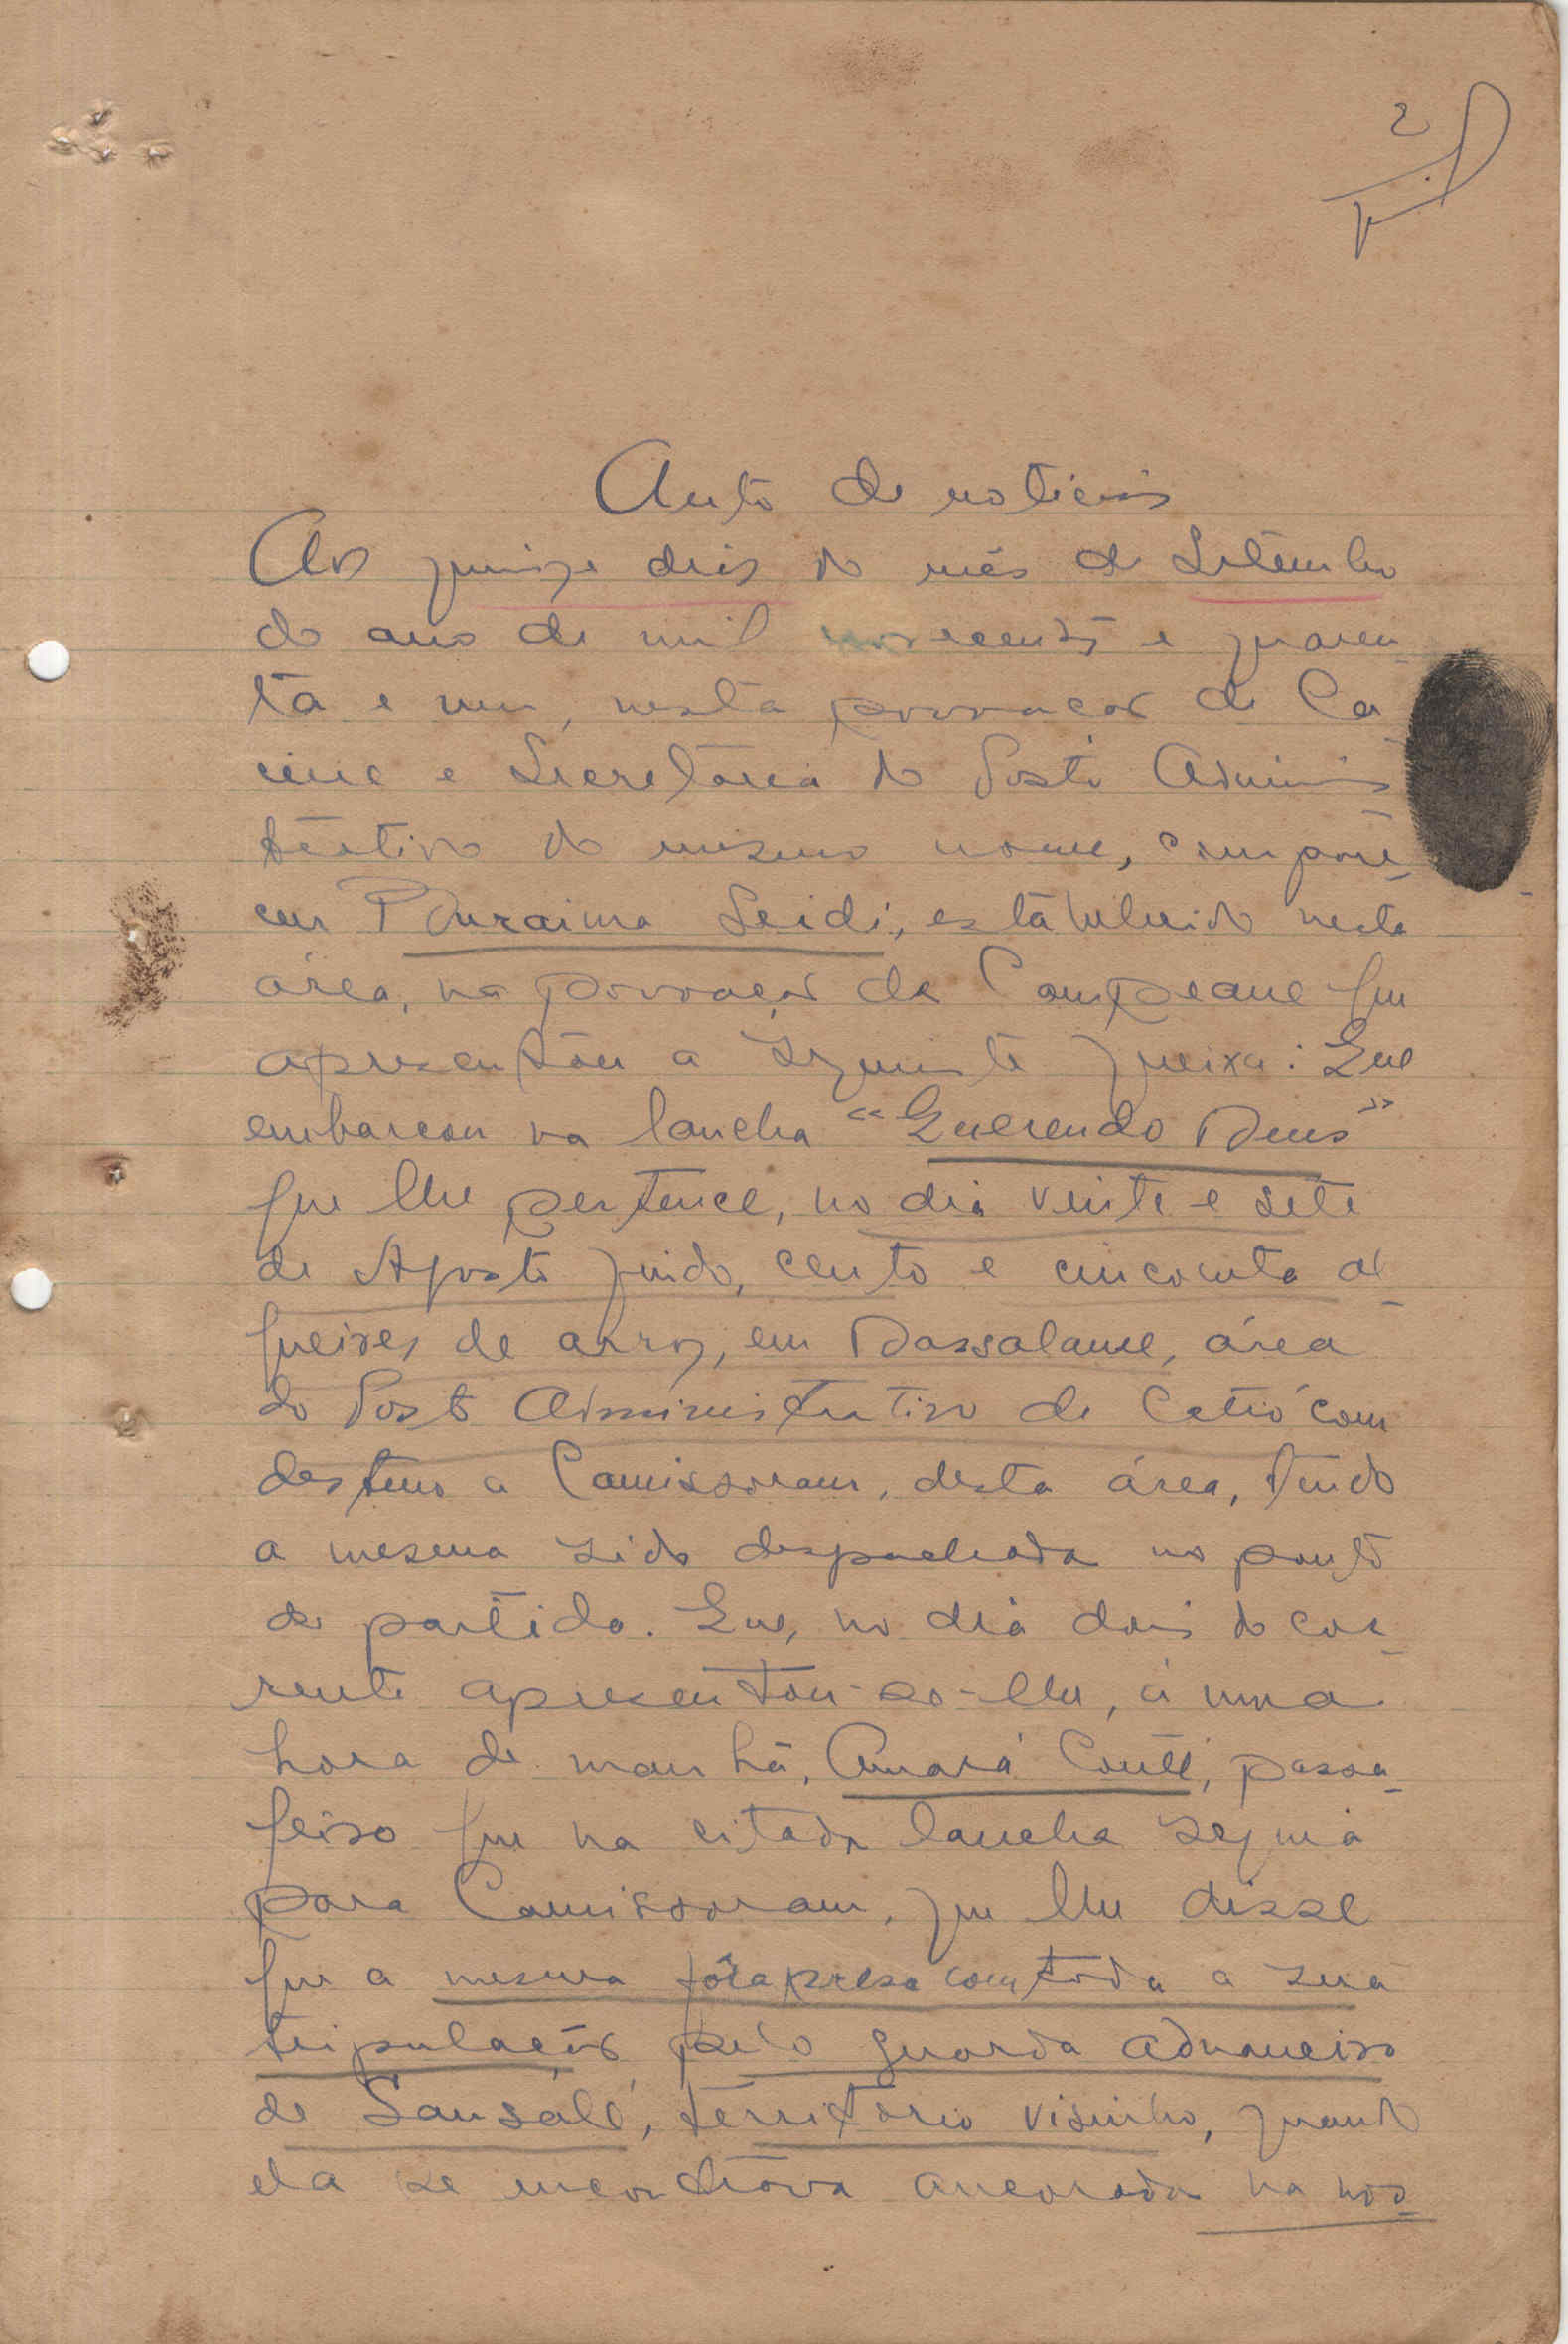 2
Auto de noticias
Aos quinze dias do mês de Setembro
do ano de mil novecentos e quaren-
ta e um, nesta povoação de Ca-
cine e Secretária do Posto Adminis
trativo do mesmo nome, compare-
ceu Ouraima Seidi, estabelecido nesta
área, na povoação de Campeane que
apresentou a seguinte queixa: Que
embarcou na lancha "Querendo Deus"
que lhe pertence, no dia vinte e sete
de Agosto findo, cento e cincoenta al-
queires de arroz, em Dassalame, área
do Posto Administrativo de Catió com
destino a Camissoram, desta área, tendo
a mesma sido despachada no ponto
de partida. Que, no dia dois do cor-
rente apresentou-se-lhe, á uma
hora de manhã, Amará Conté, passa-
geiro que na citada lancha seguia
para Camissoram, que lhe disse
que a mesma fôra presa com toda a sua
tripulação pelo guarda aduaneiro
de Sansalé, território visinho, quando
ela se encontrava ancorada na nos-